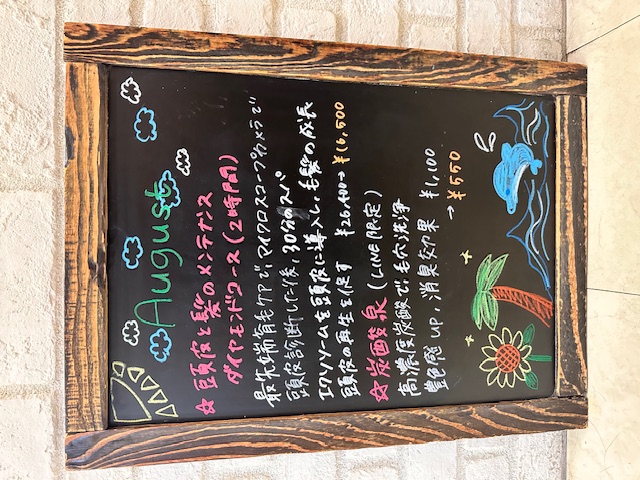 August
☆ 頭皮と髪のメンテナンス
ダイヤモンドコース（2時間）
最先端育毛ケア。マイクロスコープカメラで
頭皮診断した後、30分のスパ
エクソソームを頭皮に導入し、毛髪の成長
頭皮の再生を促す ¥26,400→¥16,500
☆ 炭酸泉（LINE限定）
高濃度炭酸で毛穴洗浄
艶色感up、消臭効果 ¥1,100
→¥550